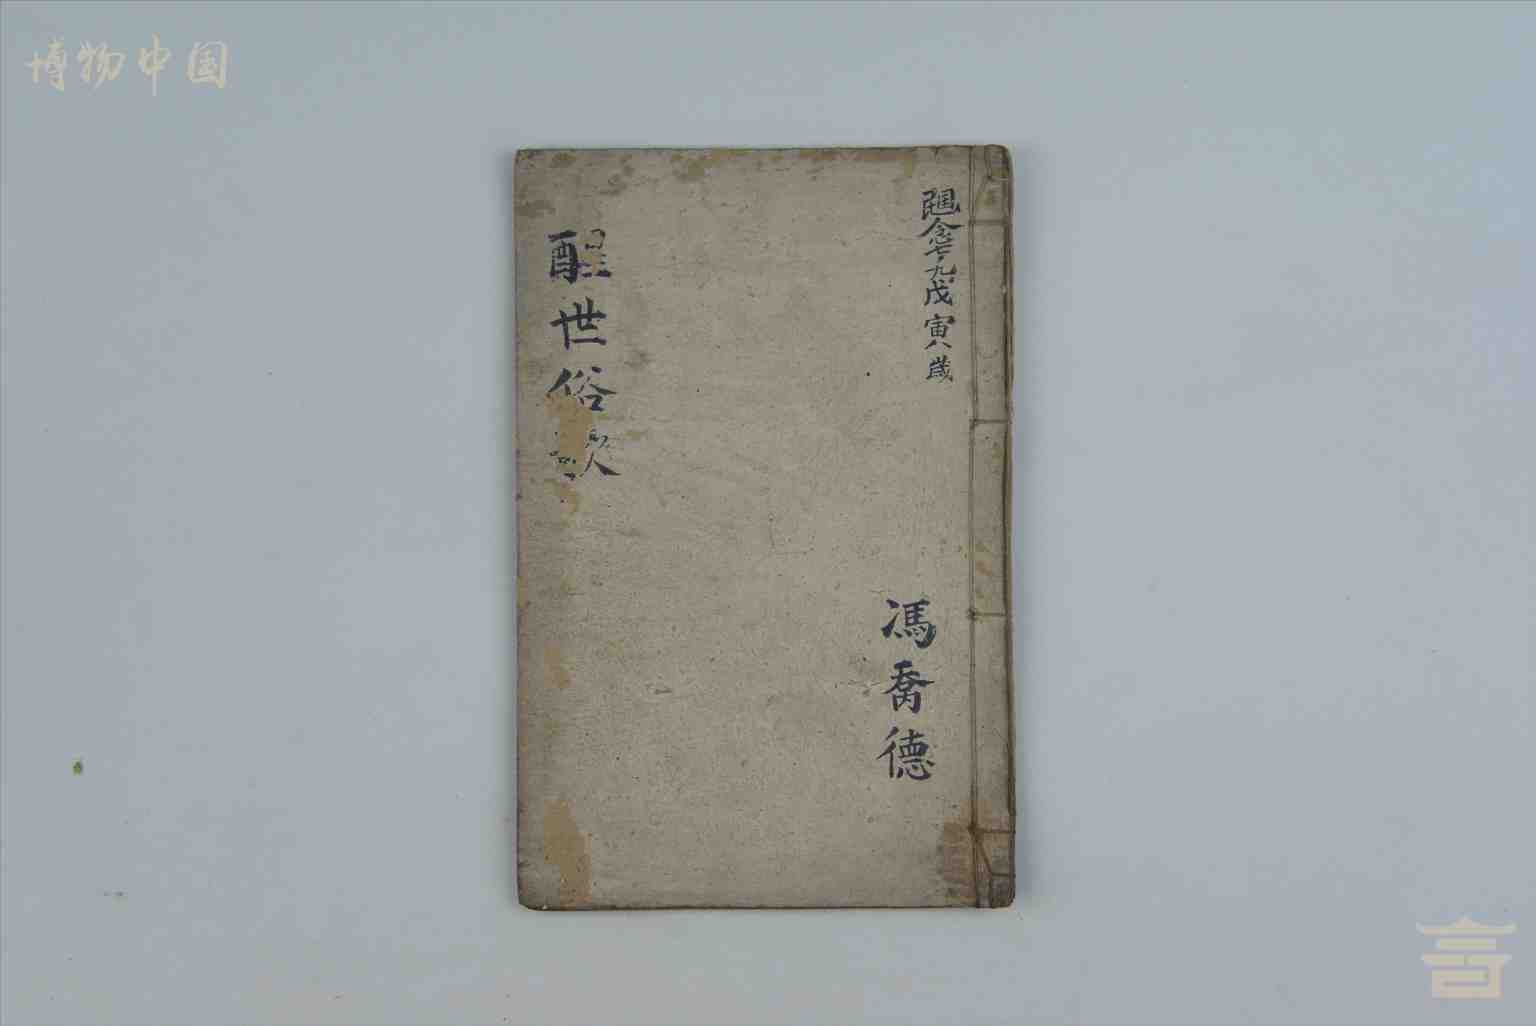 博物中国
念七九戊寅八歳
馮喬德
醒世俗歌